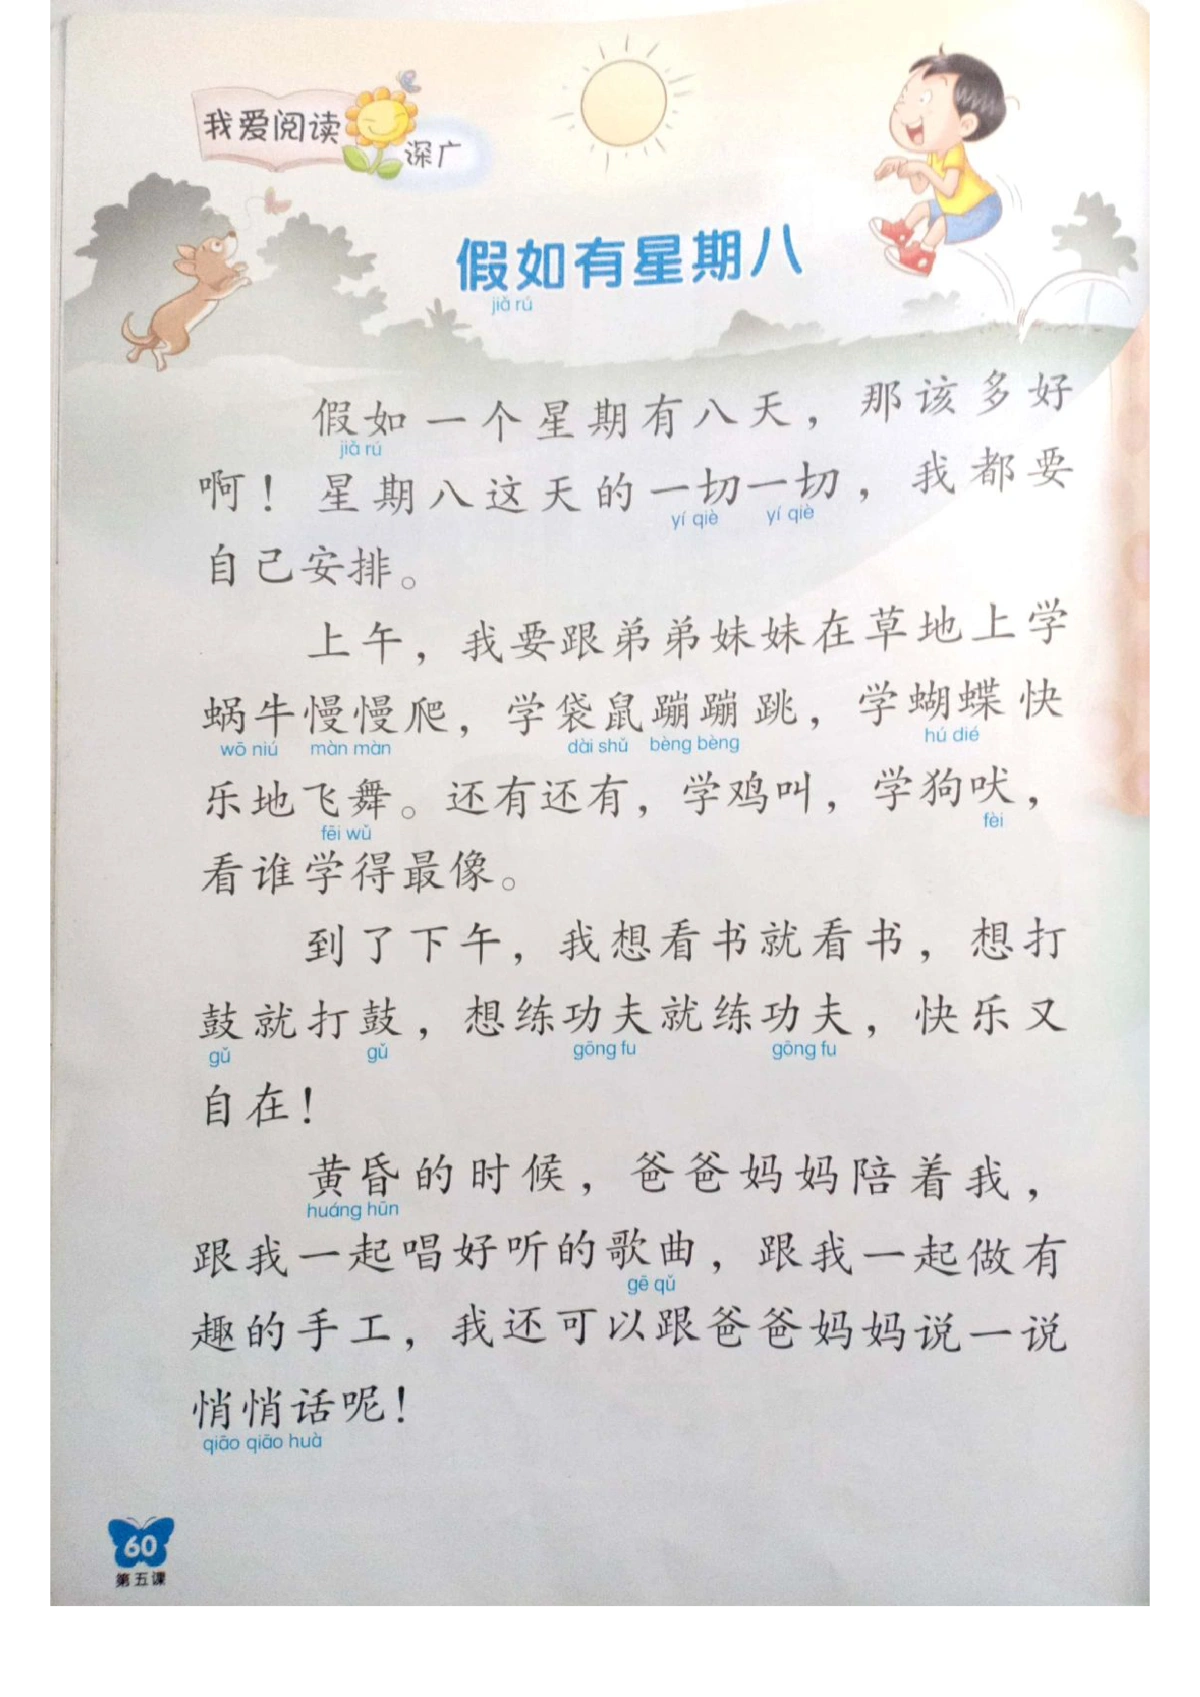 我爱阅读
深广
假如有星期八
jiǎ rú
假如一个星期有八天，那该多好
jiǎ rú
啊！星期八这天的一切一切，我都要
yí qiè yí qiè
自己安排。
上午，我要跟弟弟妹妹在草地上学
蜗牛慢慢爬，学袋鼠蹦蹦跳，学蝴蝶快
wō niú màn màn dài shǔ bèng bèng hú dié
乐地飞舞。还有还有，学鸡叫，学狗吠，
fēi wǔ fèi
看谁学得最像。
到了下午，我想看书就看书，想打
鼓就打鼓，想练功夫就练功夫，快乐又
gǔ gǔ gōng fu gōng fu
自在！
黄昏的时候，爸爸妈妈陪着我，
huáng hūn
跟我一起唱好听的歌曲，跟我一起做有
gē qǔ
趣的手工，我还可以跟爸爸妈妈说一说
悄悄话呢！
qiāo qiāo huà
60
第五课